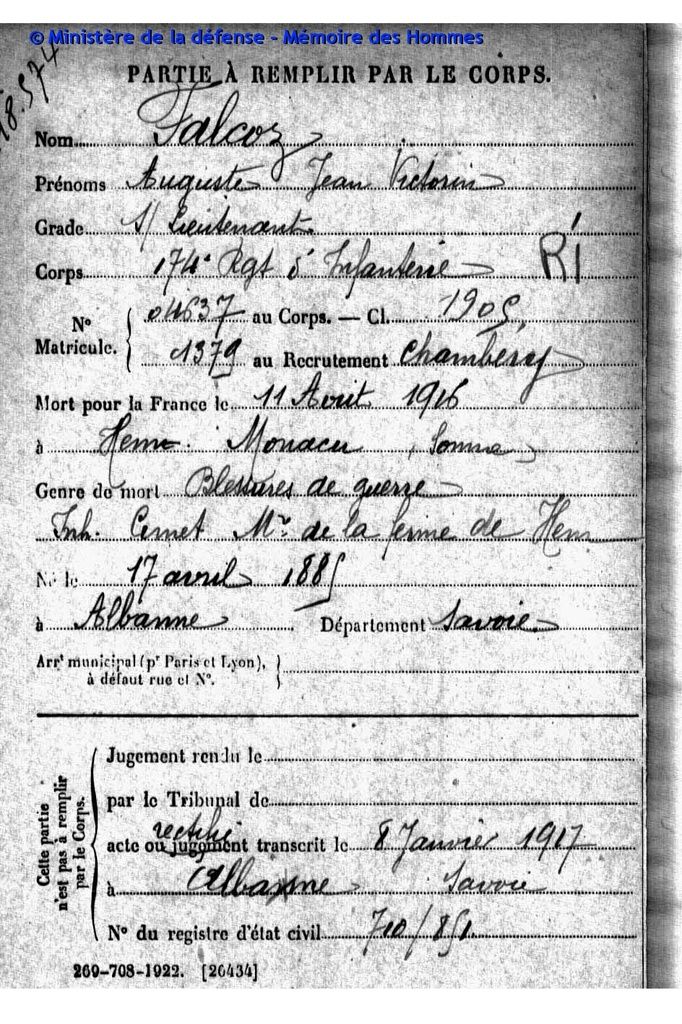 © Ministère de la défense - Mémoire des Hommes
18.574
PARTIE À REMPLIR PAR LE CORPS.
Nom Falcoz
Prénoms Auguste Jean Victorin
Grade S/ Lieutenant
Corps 174e Rgt d'Infanterie RI
N° Matricule. { 04637 au Corps. — Cl. 1905
1379 au Recrutement Chambéry
Mort pour la France le 11 Août 1916
à Hem Monacu (Somme)
Genre de mort Blessures de guerre
Inh. Cimet Mre de la ferme de Hem
Né le 17 avril 1885
à Albanne Département Savoie
Arrt municipal (pr Paris et Lyon), }
à défaut rue et N°.
Cette partie n'est pas à remplir par le Corps.
Jugement rendu le
par le Tribunal de
rectifié
acte ou jugement transcrit le 8 Janvier 1917
à Albanne Savoie
N° du registre d'état civil 710/851
269-708-1922. [26434]